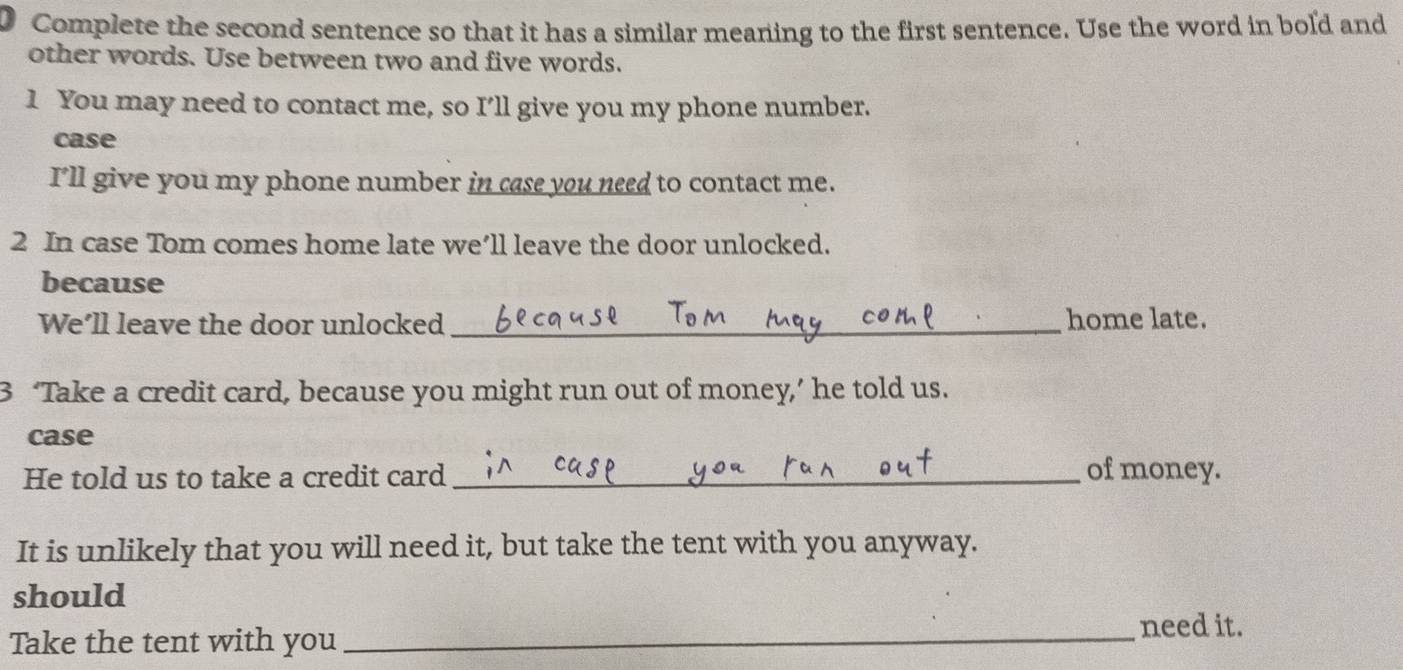 Complete the second sentence so that it has a similar meaning to the first sentence. Use the word in bold and
other words. Use between two and five words.
1 You may need to contact me, so I'll give you my phone number.
case
I'll give you my phone number in case you need to contact me.
2 In case Tom comes home late we'll leave the door unlocked.
because
We'll leave the door unlocked because Tom may come home late.
3 'Take a credit card, because you might run out of money,' he told us.
case
He told us to take a credit card in case you ran out of money.
It is unlikely that you will need it, but take the tent with you anyway.
should
Take the tent with you ____ need it.